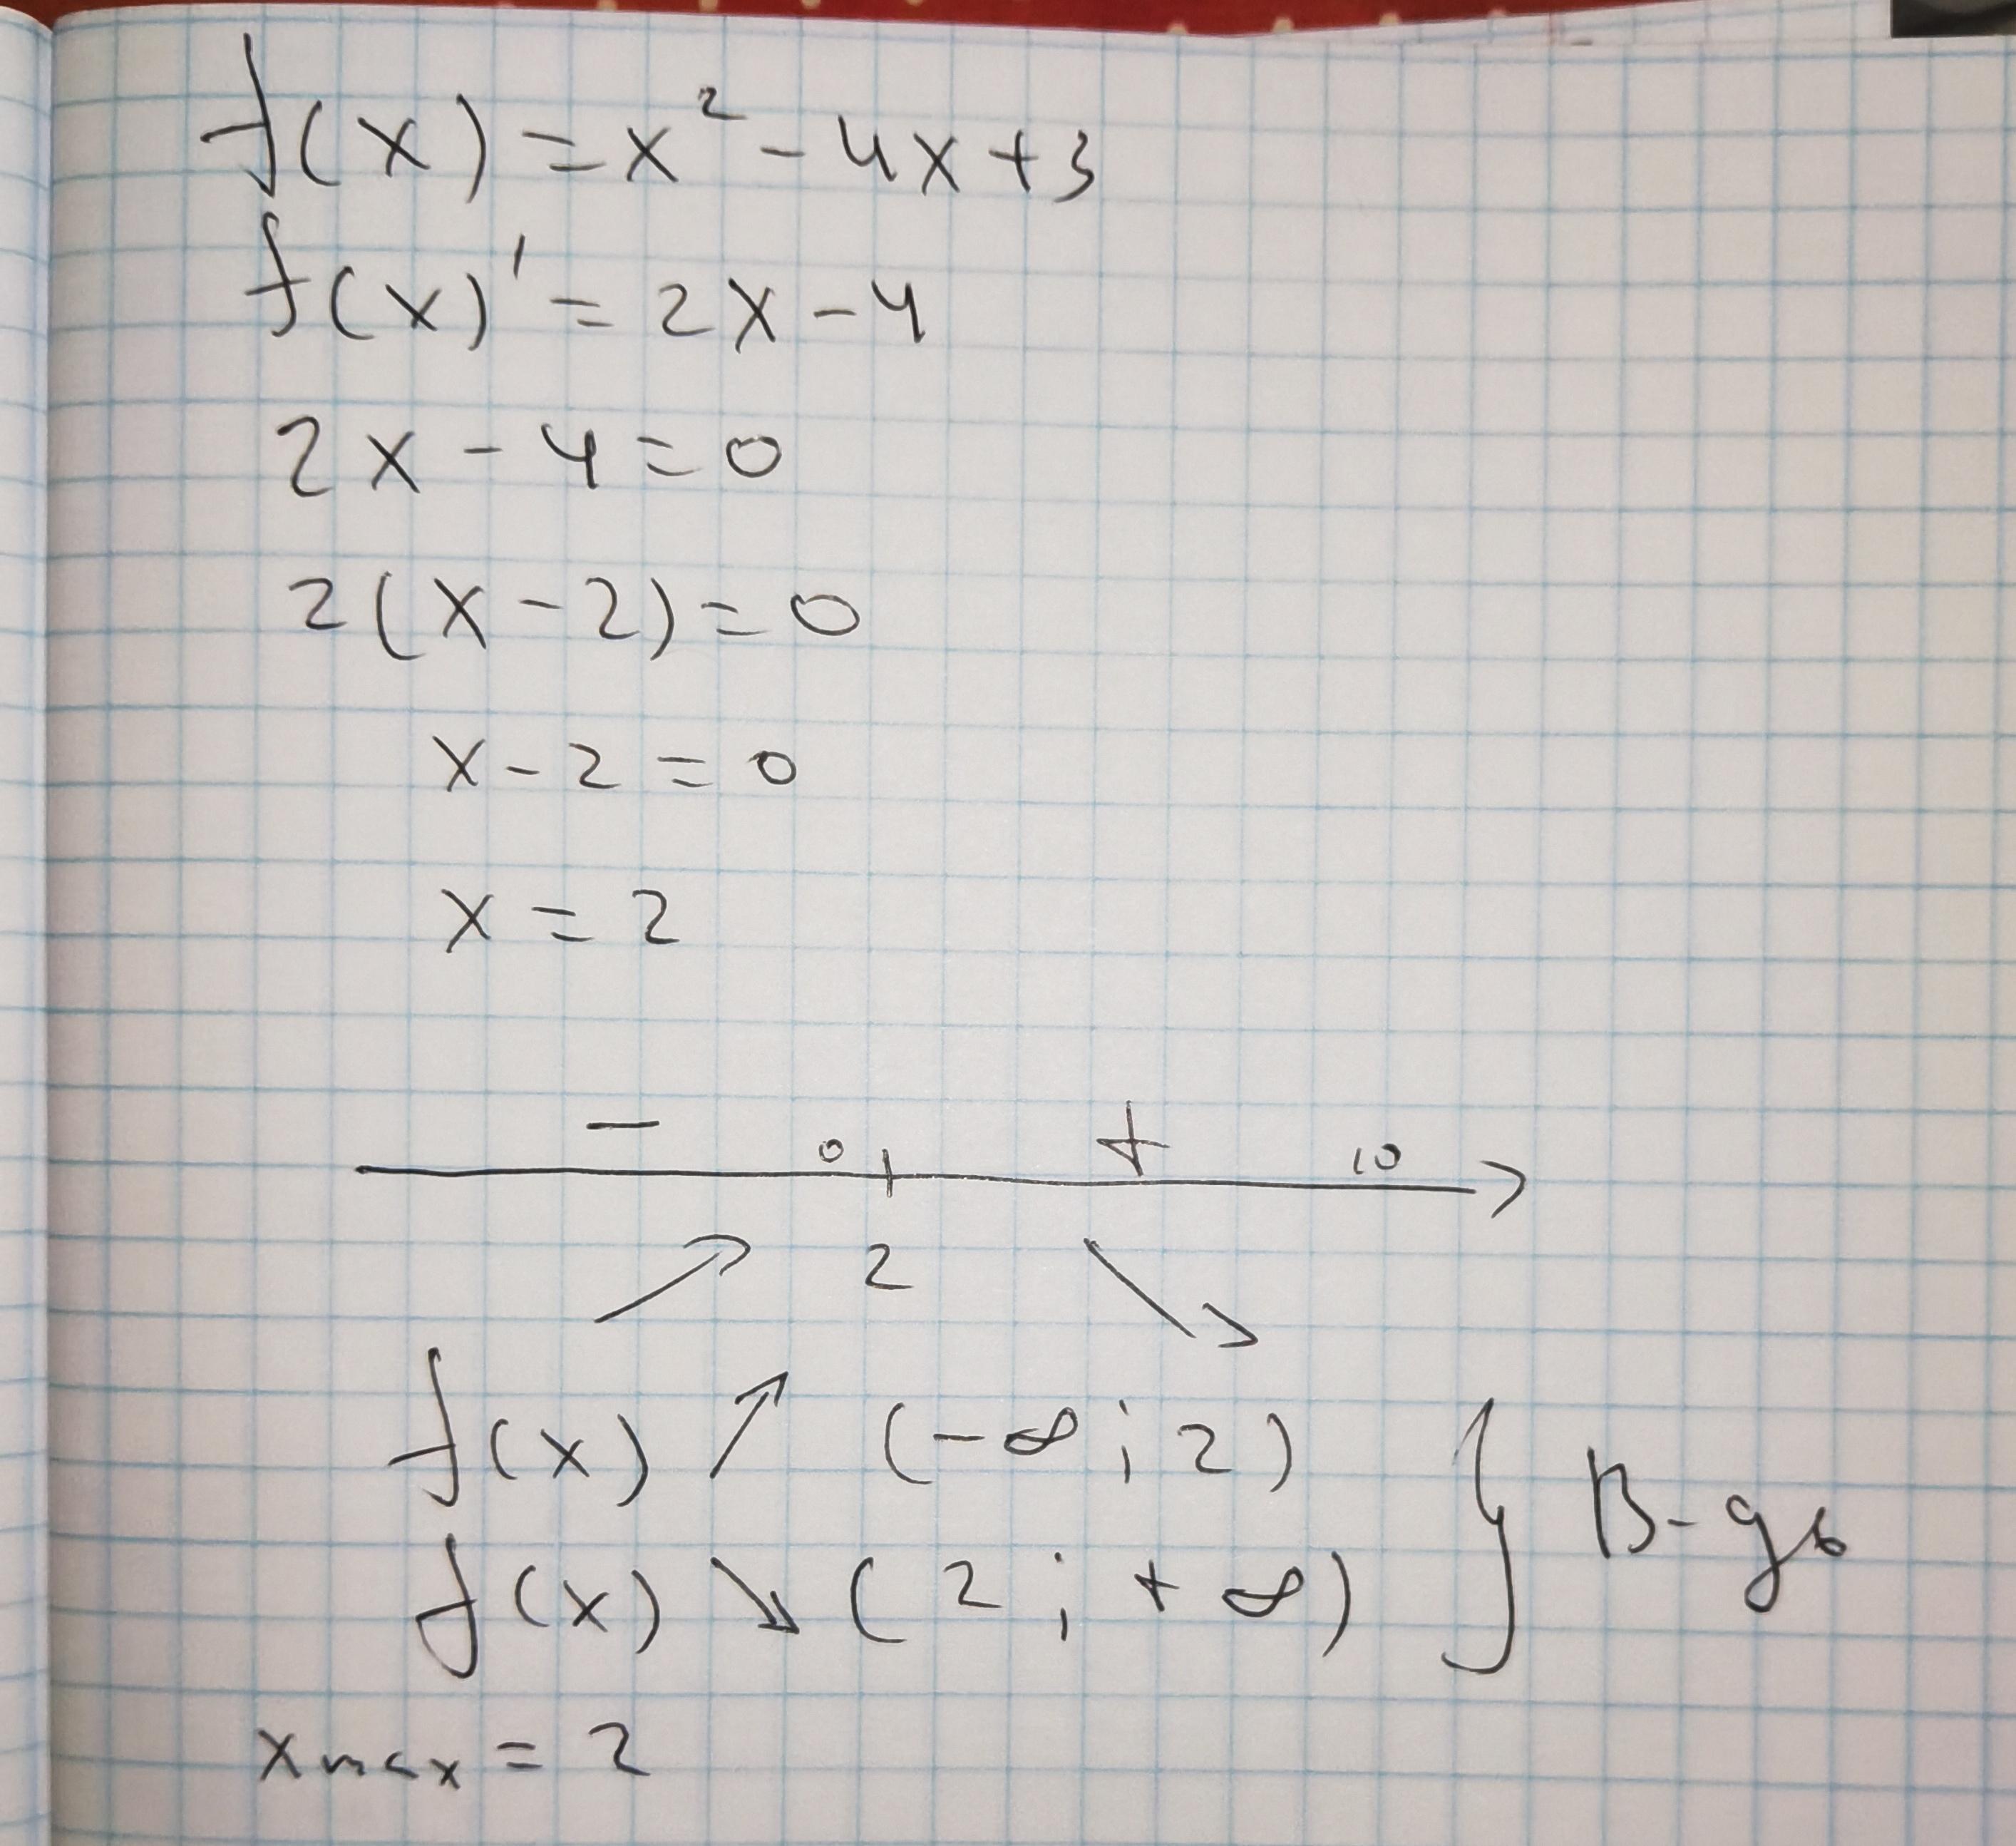 f(x) = x² - 4x + 3
f(x)' = 2x - 4
2x - 4 = 0
2(x - 2) = 0
x - 2 = 0
x = 2
− 0 + 10
2
f(x) ↗ (-∞; 2)
f(x) ↘ (2; +∞) } В-дь
xmax = 2